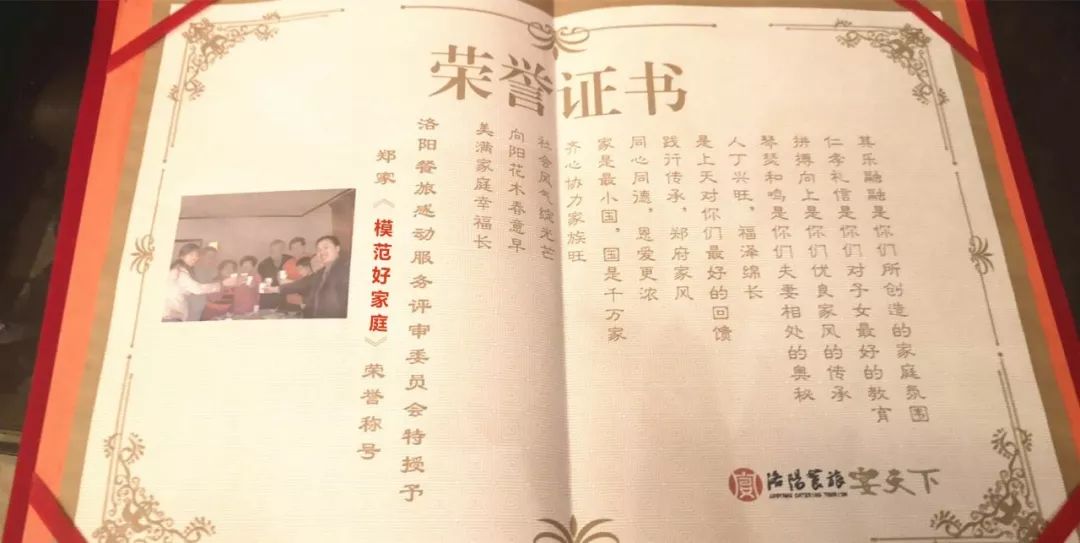 荣誉证书
其乐融融是你们所创造的家庭氛围
仁孝礼信是你们对子女最好的教育
拼搏向上是你们优良家风的传承
琴瑟和鸣是你们夫妻相处的奥秘
人丁兴旺，福泽绵长
是上天对你们最好的回馈
践行传承，郑府家风
同心同德，恩爱更浓
家是最小国，国是千万家
齐心协力家族旺
社会风气绽光芒
向阳花木春意早
美满家庭幸福长
洛阳餐旅感动服务评审委员会特授予
郑家《模范好家庭》荣誉称号
洛阳餐旅
宴天下